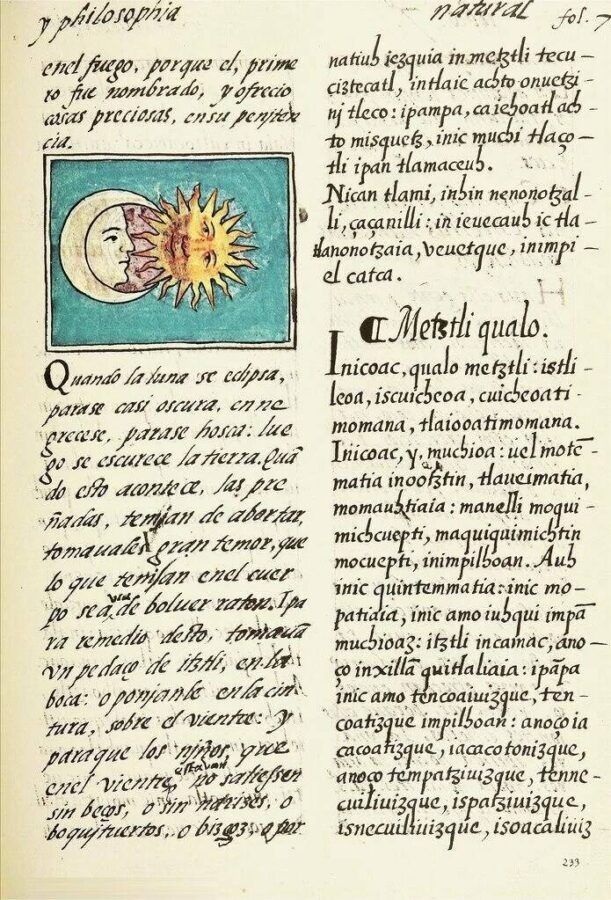 y philosophia
enel fuego, porque el, prime
ro fue nombrado, y ofrecio
cosas preciosas, en su peniten
cia.
Quando la luna se eclipsa,
parase casi oscura, enne
grecese, parase hosca: lue
go se escurece la tierra. Quã
do esto acontece, las pre
ñadas, temjan de abortar,
tomauales gran temor, que
lo que temjan enel cuer
po se avia de boluer raton. I pa
ra remedio desto, tomauã
vn pedaço de itztli, en la
boca: o ponjanle en la cin
tura, sobre el vientre: y
para que los niños, que
enel vientre estauan, no saliessen
sin beços, o sin narizes, o
boquituertos, o bizcos: o por
natural
fol. 7
natiuh iezquia in metztli tecu
ciztecatl, intlaic achto onuetzi-
nj tleco: ipampa, ca iehoatl ach-
to misquetz, inic muchi tlaço-
tli ipan tlamaceuh.
Nican tlami, inhin nenonotzal-
li, çaçanilli: in ieuecauh ic tla-
tlanonotzaia, veuetque, inimpi-
el catca.
¶ Metztli qualo.
Inicoac, qualo metztli: istli
leoa, iscuicheoa, cuicheoati-
momana, tlaiooatimomana.
Inicoac, y, muchioa: uel motẽ-
matia inootztin, tlaueimatia,
momauhtiaia: manelli moqui-
michcuepti, maquiquimichtin
mocuepti, inimpilhoan. Auh
inic quintemmatia: inic mo-
patiaia, inic amo iuhqui impã
muchioaz: itztli incamac, ano-
ço inxillã quitlaliaia: ipãpa
inic amo tencoaiuizque, ten-
coatizque impilhoan: anoço ia
cacoatizque, iacacotonizque,
anoço tempatziuizque, tenne-
cuiliuizque, ispatziuizque,
isnecuiliuizque, isoacaliuiz
233